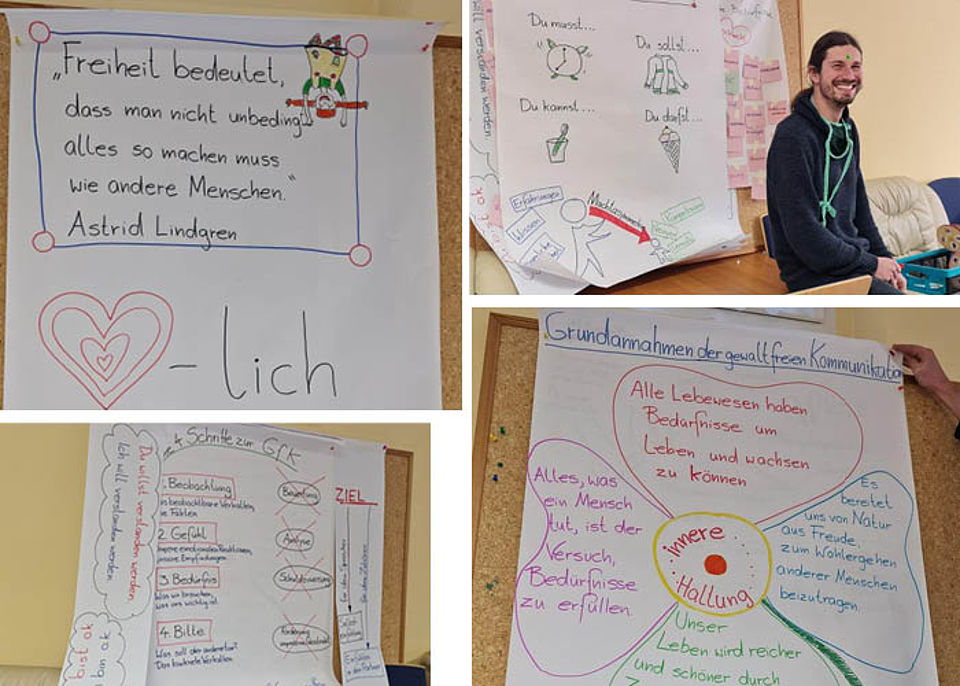 „Freiheit bedeutet,
dass man nicht unbedingt
alles so machen muss
wie andere Menschen."
Astrid Lindgren
- lich
Du musst...
Du sollst...
Du kannst...
Du darfst...
verstanden werden.
Erfahrungen
Wissen
Machtgefälle
ist ok
4 Schritte zur GfK
Du willst verstanden werden.
Ich will verstanden werden.
1. Beobachtung
in beobachtbare Verhalten,
ie Fakten
2. Gefühl
unsere Empfindungen.
3. Bedürfnis
Was wir brauchen,
was uns wichtig ist.
4. Bitte
Was soll der andere tun?
Das konkrete Verhalten
Bewertung
Analyse
Schuldzuweisung
Forderung
ZIEL
bist ok
bin ok
Grundannahmen der gewaltfreien Kommunikation
Alle Lebewesen haben
Bedürfnisse um
Leben und wachsen
zu können
Alles, was
ein Mensch
tut, ist der
Versuch,
Bedürfnisse
zu erfüllen.
innere
Haltung
Es
bereitet
uns von Natur
aus Freude,
zum Wohlergehen
anderer Menschen
beizutragen.
Unser
Leben wird reicher
und schöner durch